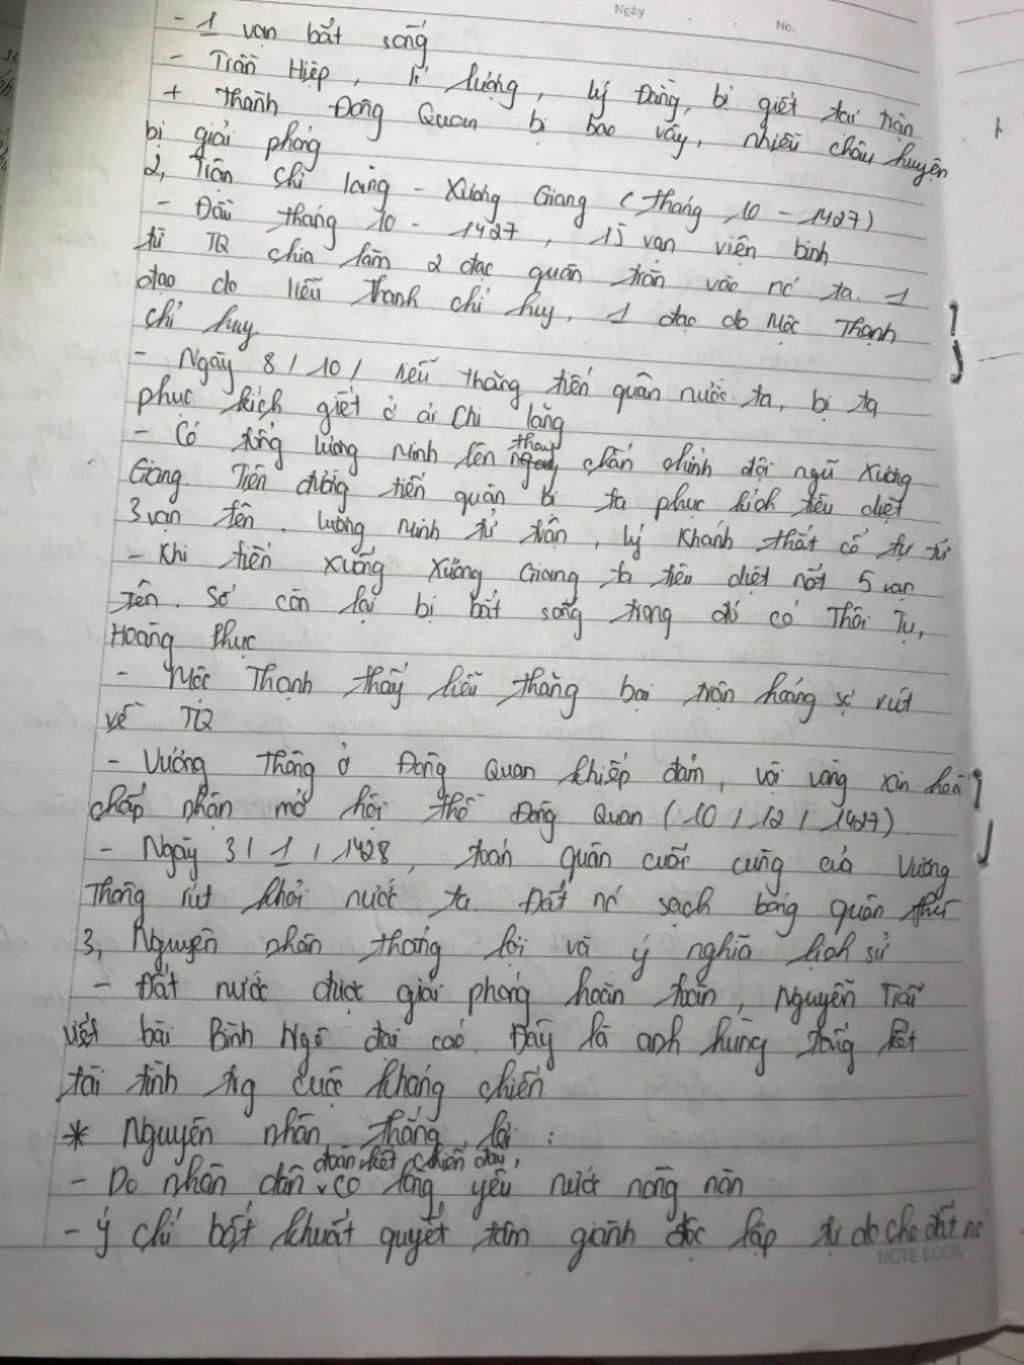 Ngày No.
- 1 vạn bắt sống
- Trần Hiệp, lí lượng, lý Đằng, bị giết tại trận
+ Thành Đông Quan bị bao vây, nhiều châu huyện
bị giải phóng
2, Trận chi lăng - Xương Giang (tháng 10 - 1427)
- Đầu tháng 10 - 1427, 15 vạn viện binh
từ TQ chia làm 2 đạo quân tràn vào nc' ta. 1
đạo do liễu Thanh chỉ huy, 1 đạo do Mộc Thạnh
chỉ huy.
- Ngày 8/10/ liễu thăng tiến quân nước ta, bị ta
phục kích giết ở ải Chi lăng
- Có tổng lương Minh lên thay, chấn chỉnh đội ngũ Xương
Giang. Trên đường tiến quân bị ta phục kích tiêu diệt
3 vạn tên. lương Minh tử trận, lý Khánh thắt cổ tự tử
- Khi tiến xuống Xương Giang ta tiêu diệt nốt 5 vạn
tên. Số còn lại bị bắt sống trong đó có Thôi Tụ,
Hoàng Phục
- Mộc Thạnh thấy liễu thăng bại trận hoảng sợ rút
về TQ
- Vương Thông ở Đông Quan khiếp đảm, vội vàng xin hoà
chấp nhận mở hội thề Đông Quan (10/12/1427)
- Ngày 3/1/1428, toán quân cuối cùng của Vương
Thông rút khỏi nước ta. Đất nc' sạch bóng quân thù
3, Nguyên nhân thắng lợi và ý nghĩa lịch sử
- Đất nước được giải phóng hoàn toàn, Nguyễn Trãi
viết bài Bình Ngô đại cáo. Đây là anh hùng tổng kết
tài tình tng cuộc kháng chiến
* Nguyên nhân thắng lợi:
- Do nhân dân đoàn kết chiến đấu, có lòng yêu nước nồng nàn
- Ý chí bất khuất quyết tâm giành độc lập tự do cho đất nc'
NOTE BOOK